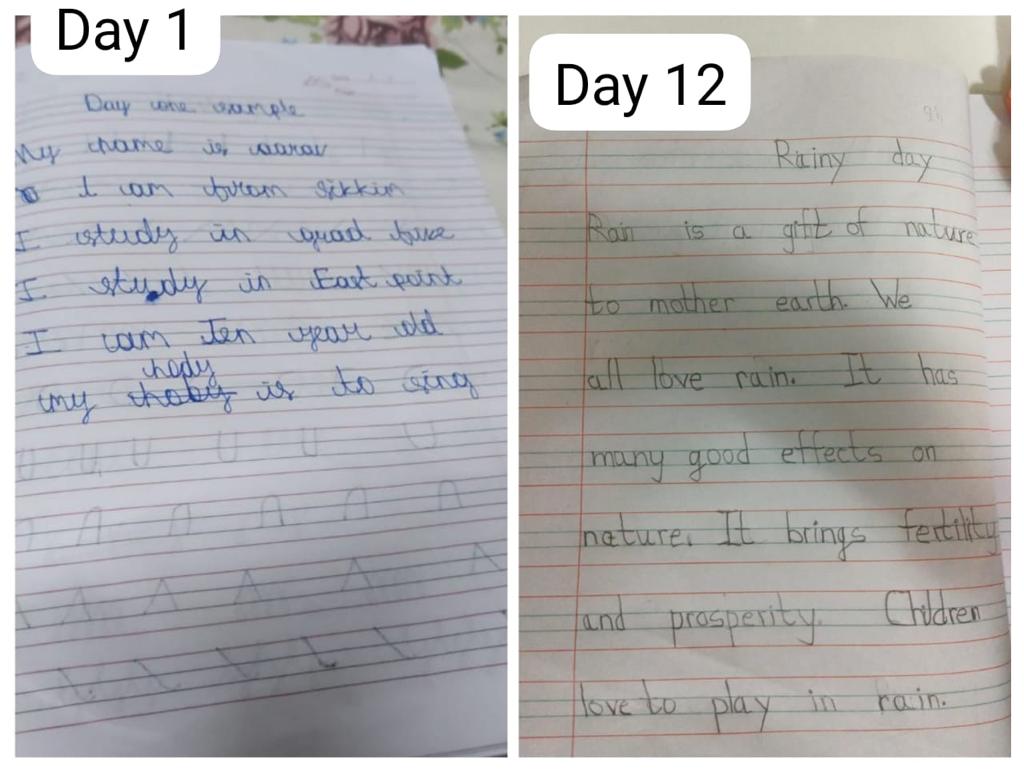 Day 1
Day one sample
My name is aarav
I am from Sikkim
I study in grad five
I study in East point
I am Ten year old
hody
my hoby is to sing
U U U U U U
A A A A A
Day 12
Rainy day
Rain is a gift of nature
to mother earth. We
all love rain. It has
many good effects on
nature. It brings fertility
and prosperity. Children
love to play in rain.